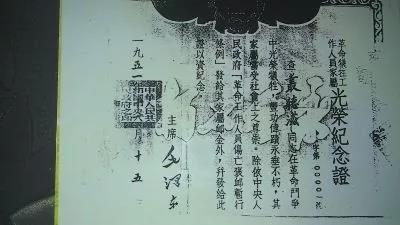 革命犧牲工
作人員家屬光榮紀念證
字第 0000 號
同志在革命鬥爭
中光榮犧牲,豐功偉蹟永垂不朽,其
家屬當受社會上之尊崇。除依中央人
民政府「革命工作人員傷亡褒卹暫行
條例」發給其家屬卹金外,並發給此
證以資紀念。
主席 毛澤东
一九五一
十五